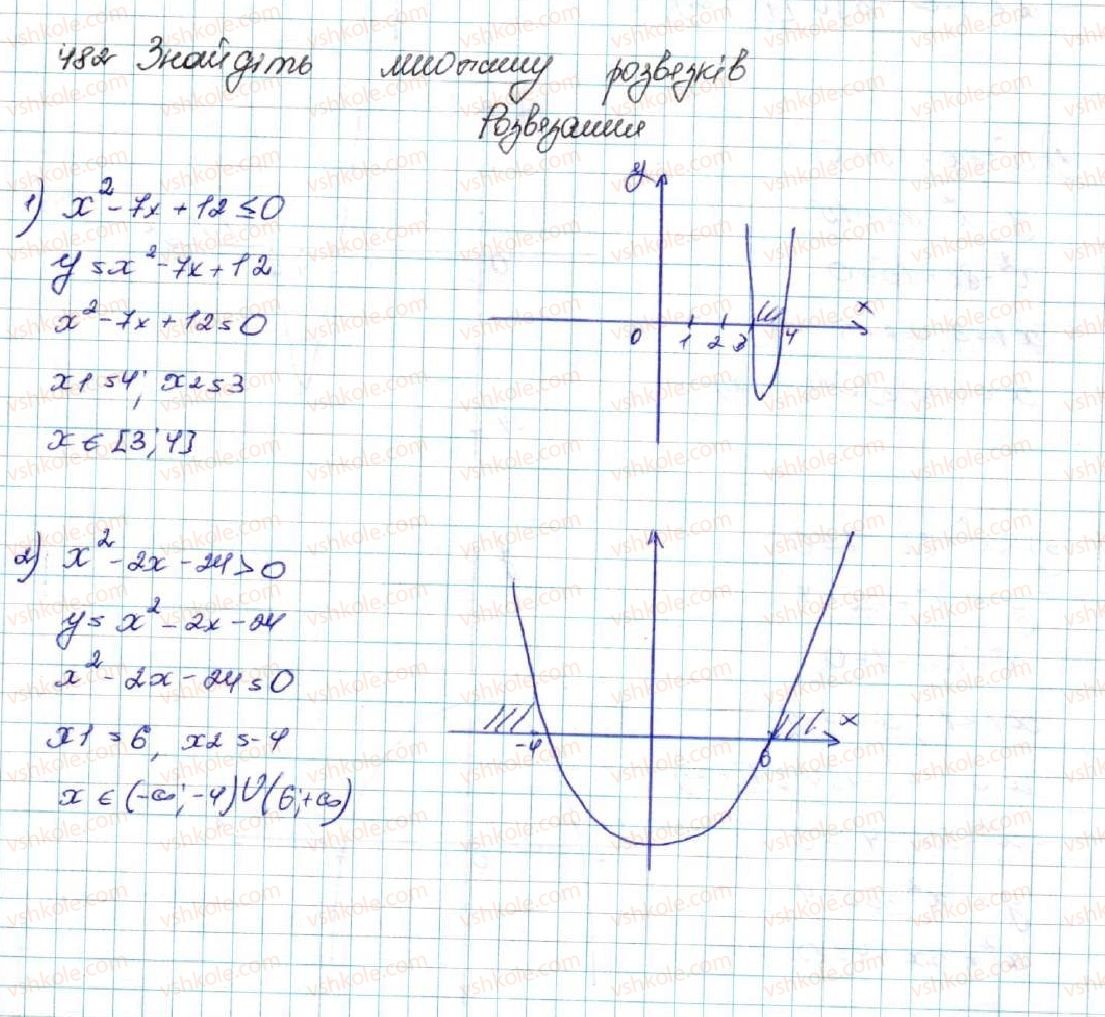 482 Знайдіть множину розвезків
Розвезання
1) x² - 7x + 12 ≤ 0
y = x² - 7x + 12
x² - 7x + 12 = 0
x1 = 4; x2 = 3
x ∈ [3; 4]
y
x
0 1 2 3 4
2) x² - 2x - 24 > 0
y = x² - 2x - 24
x² - 2x - 24 = 0
x1 = 6, x2 = -4
x ∈ (-∞; -4) ∪ (6; +∞)
x
-4 6
vshkole.com